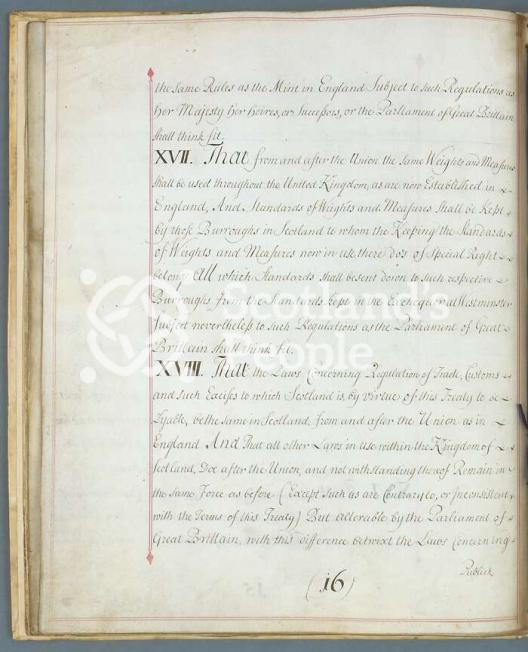 the same Rules as the Mint in England Subject to such Regulations as
Her Majesty her heires, or Successors, or the Parliament of Great Brittain
shall think fit.
XVII. That from and after the Union the same Weights and Measures
shall be used throughout the United Kingdom, as are now Established in
England, And Standards of Weights and Measures shall be kept
by those Burroughs in Scotland to whom the Keeping the Standards
of Weights and Measures now in use there do's of Special Right
belong. All which Standards shall be sent down to such respective
Burroughs from the Standards kept in the Exchequer at Westminster
Subject nevertheless to such Regulations as the Parliament of Great
Brittain shall think fit.
XVIII. That the Laws Concerning Regulation of Trade, Customs
and such Excises to which Scotland is by virtue of this Treaty to be
Lyable, be the same in Scotland, from and after the Union as in
England And That all other Laws in use within the Kingdom of
Scotland, Doe after the Union, and notwithstanding thereof Remain in
the same Force as before (Except such as are Contrary to, or Inconsistent
with the Terms of this Treaty) But alterable by the Parliament of
Great Brittain, with this difference betwixt the Laws Concerning
Publick
(16)
Scotlands
People